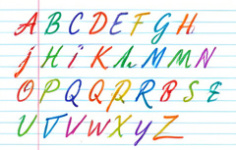 A B C D E F G H
j H i K L M M N
O P Q Q R R B S E
U U V W X y Z